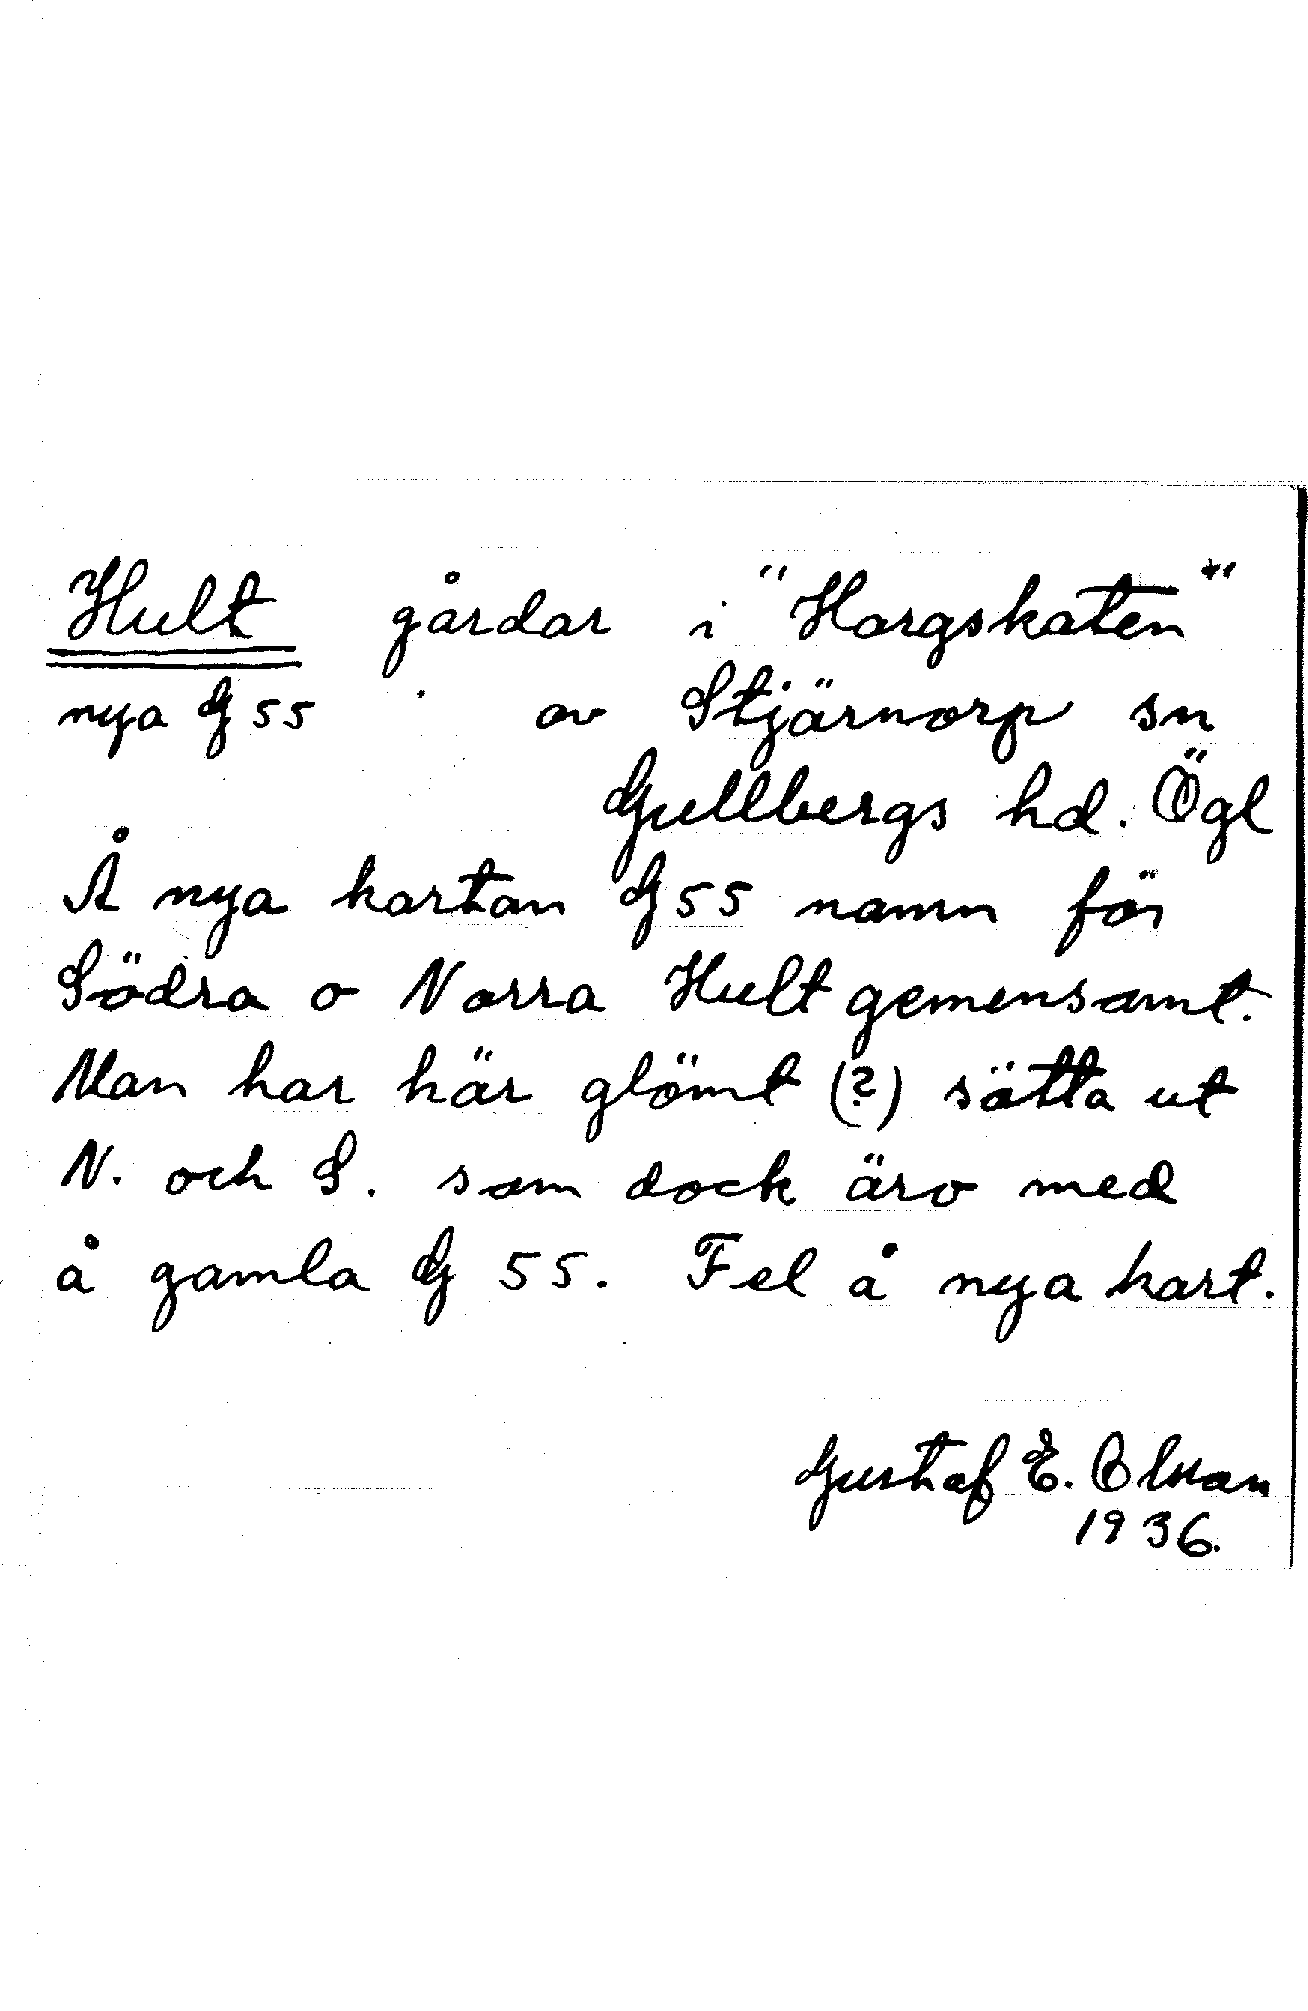 Hult gårdar i "Horgskaten"
nya G 55 av Stjärnorp sn
Gullbergs hd. Ögl
Å nya kartan G 55 namn för
Södra o Norra Hult gemensamt.
Man har här glömt (?) sätta ut
N. och S. som dock äro med
å gamla G 55. Fel å nya kart.
Gustaf E.
1936.